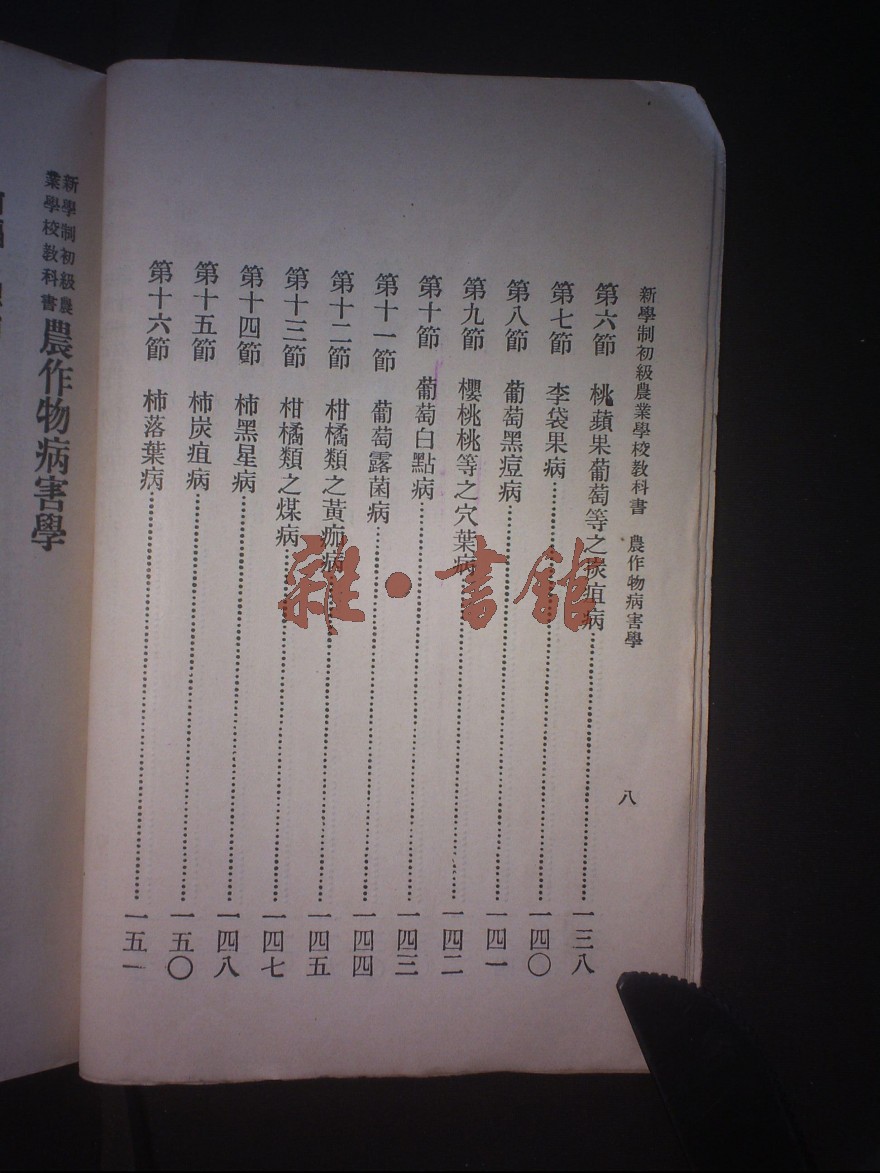 新學制初級農業學校教科書　農作物病害學
八
第六節　桃蘋果葡萄等之炭疽病…………一三八
第七節　李袋果病…………一四〇
第八節　葡萄黑痘病…………一四一
第九節　櫻桃桃等之穴葉病…………一四二
第十節　葡萄白點病…………一四三
第十一節　葡萄露菌病…………一四四
第十二節　柑橘類之黃𤵸病…………一四五
第十三節　柑橘類之煤病…………一四七
第十四節　柿黑星病…………一四八
第十五節　柿炭疽病…………一五〇
第十六節　柿落葉病…………一五一
新學制初級農
業學校教科書
農作物病害學
雜·書館